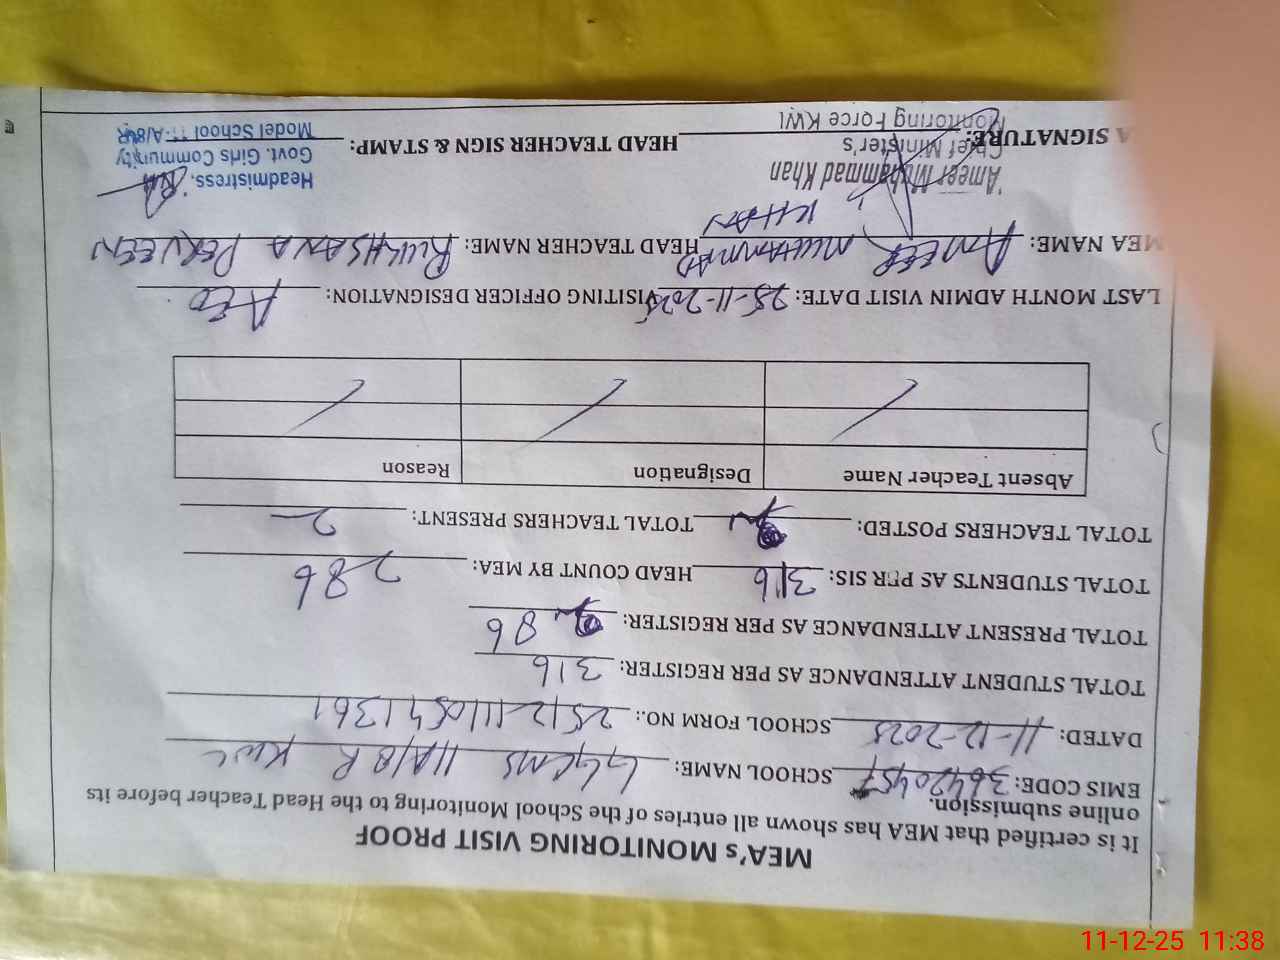 MEA's MONITORING VISIT PROOF
It is certified that MEA has shown all entries of the School Monitoring to the Head Teacher before its
online submission.
EMIS CODE: 36420457 SCHOOL NAME: GGCMS 11A/8R KWL
DATED: 11-12-2025 SCHOOL FORM NO.:
TOTAL STUDENT ATTENDANCE AS PER REGISTER: 316
TOTAL PRESENT ATTENDANCE AS PER REGISTER: 286
TOTAL STUDENTS AS PER SIS: 316 HEAD COUNT BY MEA: 286
TOTAL TEACHERS POSTED: 2 TOTAL TEACHERS PRESENT: 2
Absent Teacher Name Designation Reason
LAST MONTH ADMIN VISIT DATE: 25-11-2025 VISITING OFFICER DESIGNATION: AEO
MEA NAME: AMEER MUHAMMAD KHAN HEAD TEACHER NAME: RUKHSANA PERVEEN
A SIGNATURE: HEAD TEACHER SIGN & STAMP:
Ameer Muhammad Khan
Chief Minister's
Monitoring Force KWL
Headmistress,
Govt. Girls Community
Model School 11-A/8-R
11-12-25 11:38